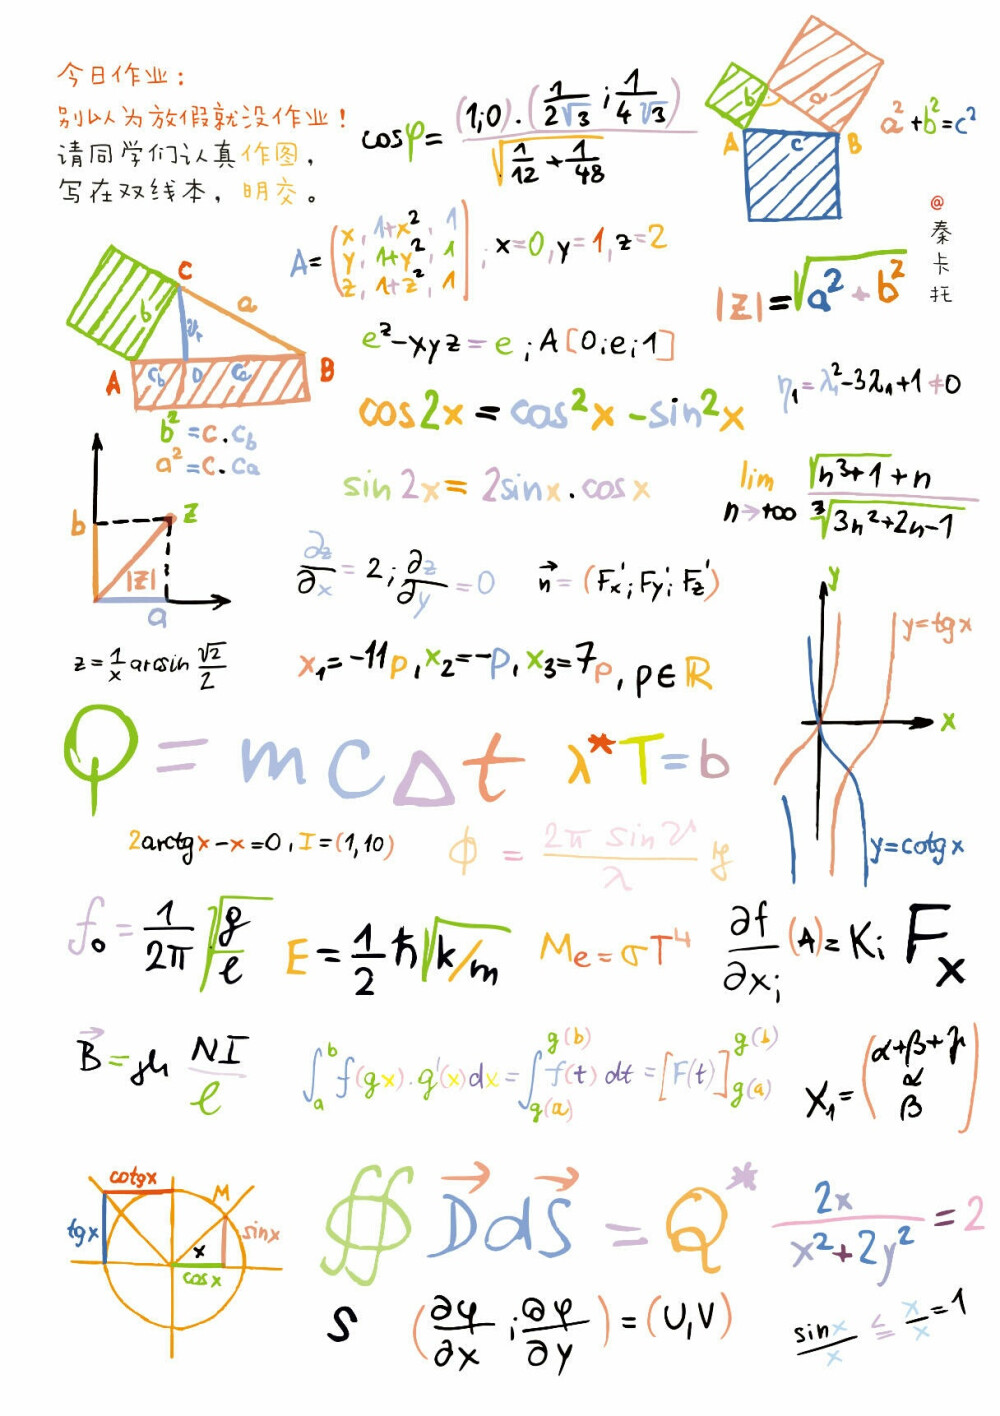 今日作业：
别以为放假就没作业！
请同学们认真作图，
写在双线本，明交。
cosφ= (1;0).(1/2√3;1/4√3) / √(1/12+1/48)
b a A c B
a²+b²=c²
@秦卡托
A=(x, 1+x², 1
y, 1+y², 1
z, 1+z², 1); x=0, y=1, z=2
|z|=√a²+b²
C b a A c_b D c_a B
b²=c.c_b
a²=c.c_a
e^z-xyz=e; A[0;e;1]
η₁=λ₁²-3λ₁+1≠0
cos2x=cos²x-sin²x
sin 2x=2sinx.cosx
lim n→+∞ √n³+1+n / ³√3n²+2n-1
b z |z| a
∂z/∂x=2; ∂z/∂y=0
n⃗=(Fx';Fy';Fz')
z=1/x arcsin √2/2
x₁=-11p, x₂=-p, x₃=7p, p∈ℝ
y y=tgx x y=cotgx
Q=mcΔt
λ*T=b
2arctgx-x=0, I=(1,10)
ϕ = 2π sin / λ y
f₀=1/2π √g/ℓ
E=1/2 ħ√k/m
Me=σT⁴
∂f/∂xᵢ(A)=Kᵢ
Fx
B⃗= NI/ℓ
∫ₐᵇ f(gx).g'(x)dx=∫g(a)^g(b) f(t)dt=[F(t)]g(a)^g(b)
X₁=(α+β+γ
α
β)
cotgx M tgx sinx x cosx
∯ D⃗dS⃗ = Q*
2x/x²+2y²=2
S
(∂φ/∂x;∂φ/∂y)=(U,V)
sinx/x ≤ x/x=1